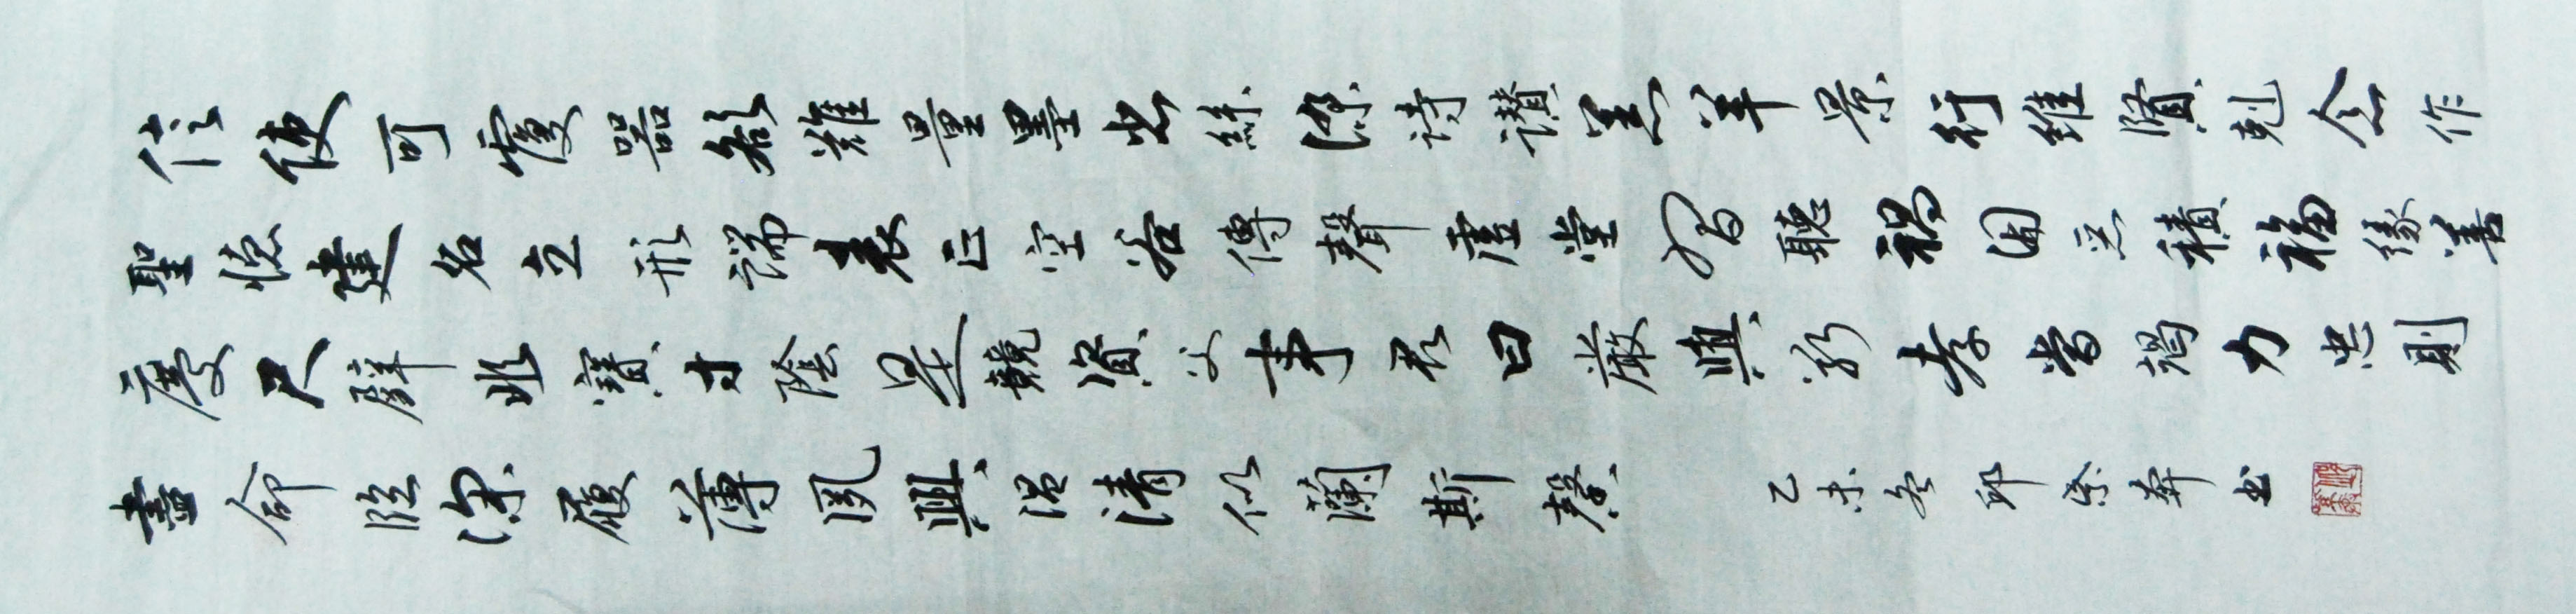 信使可覆器欲難量墨悲絲染詩讃羔羊景行維賢剋念作
聖德建名立形端表正空谷傳聲虛堂習聽禍因惡積福緣善
慶尺璧非寶寸陰是競資父事君曰嚴與敬孝當竭力忠則
盡命臨深履薄夙興溫凊似蘭斯馨
乙未冬邱
書